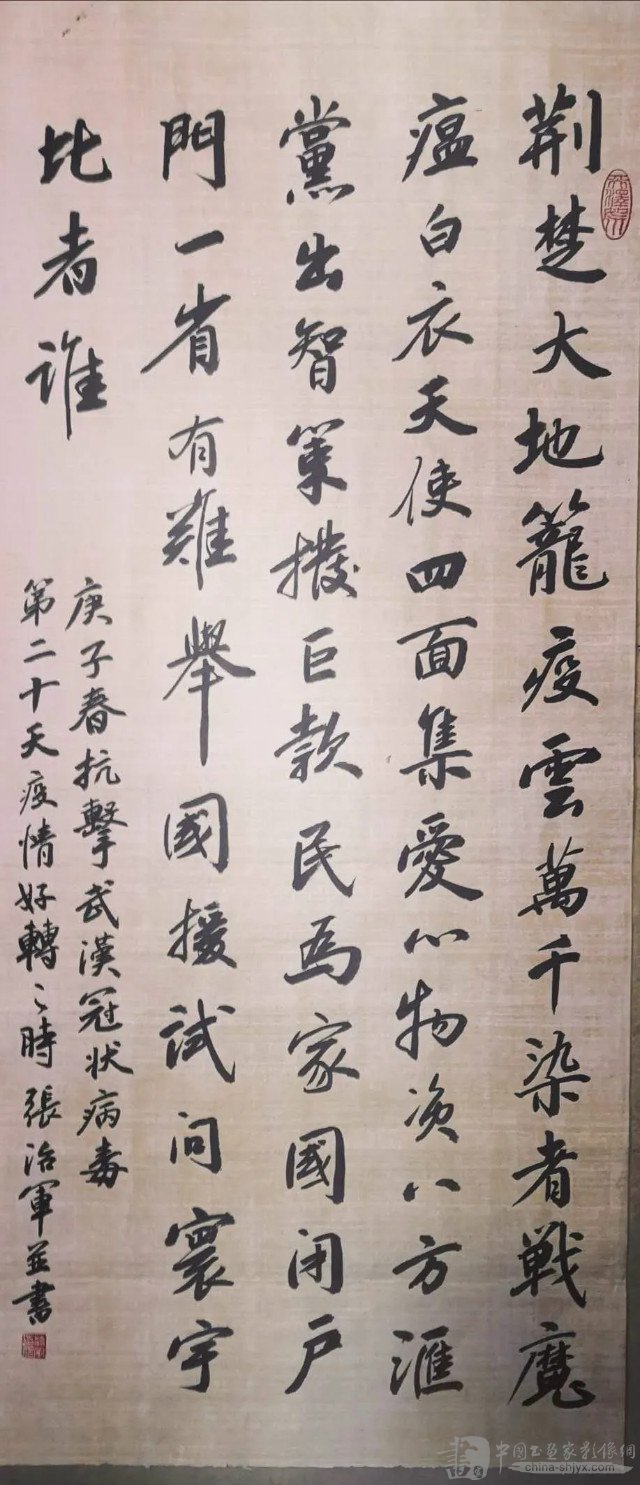 荆楚大地籠疫雲萬千染者戰魔
瘟白衣天使四面集愛心物资八方滙
黨出智策撥巨款民為家國闭户
門一省有難舉國援試问寰宇
比者谁
庚子春抗擊武漢冠状病毒
第二十天疫情好轉之時張治軍並書
中國书画家影像網
china-shjyx.com